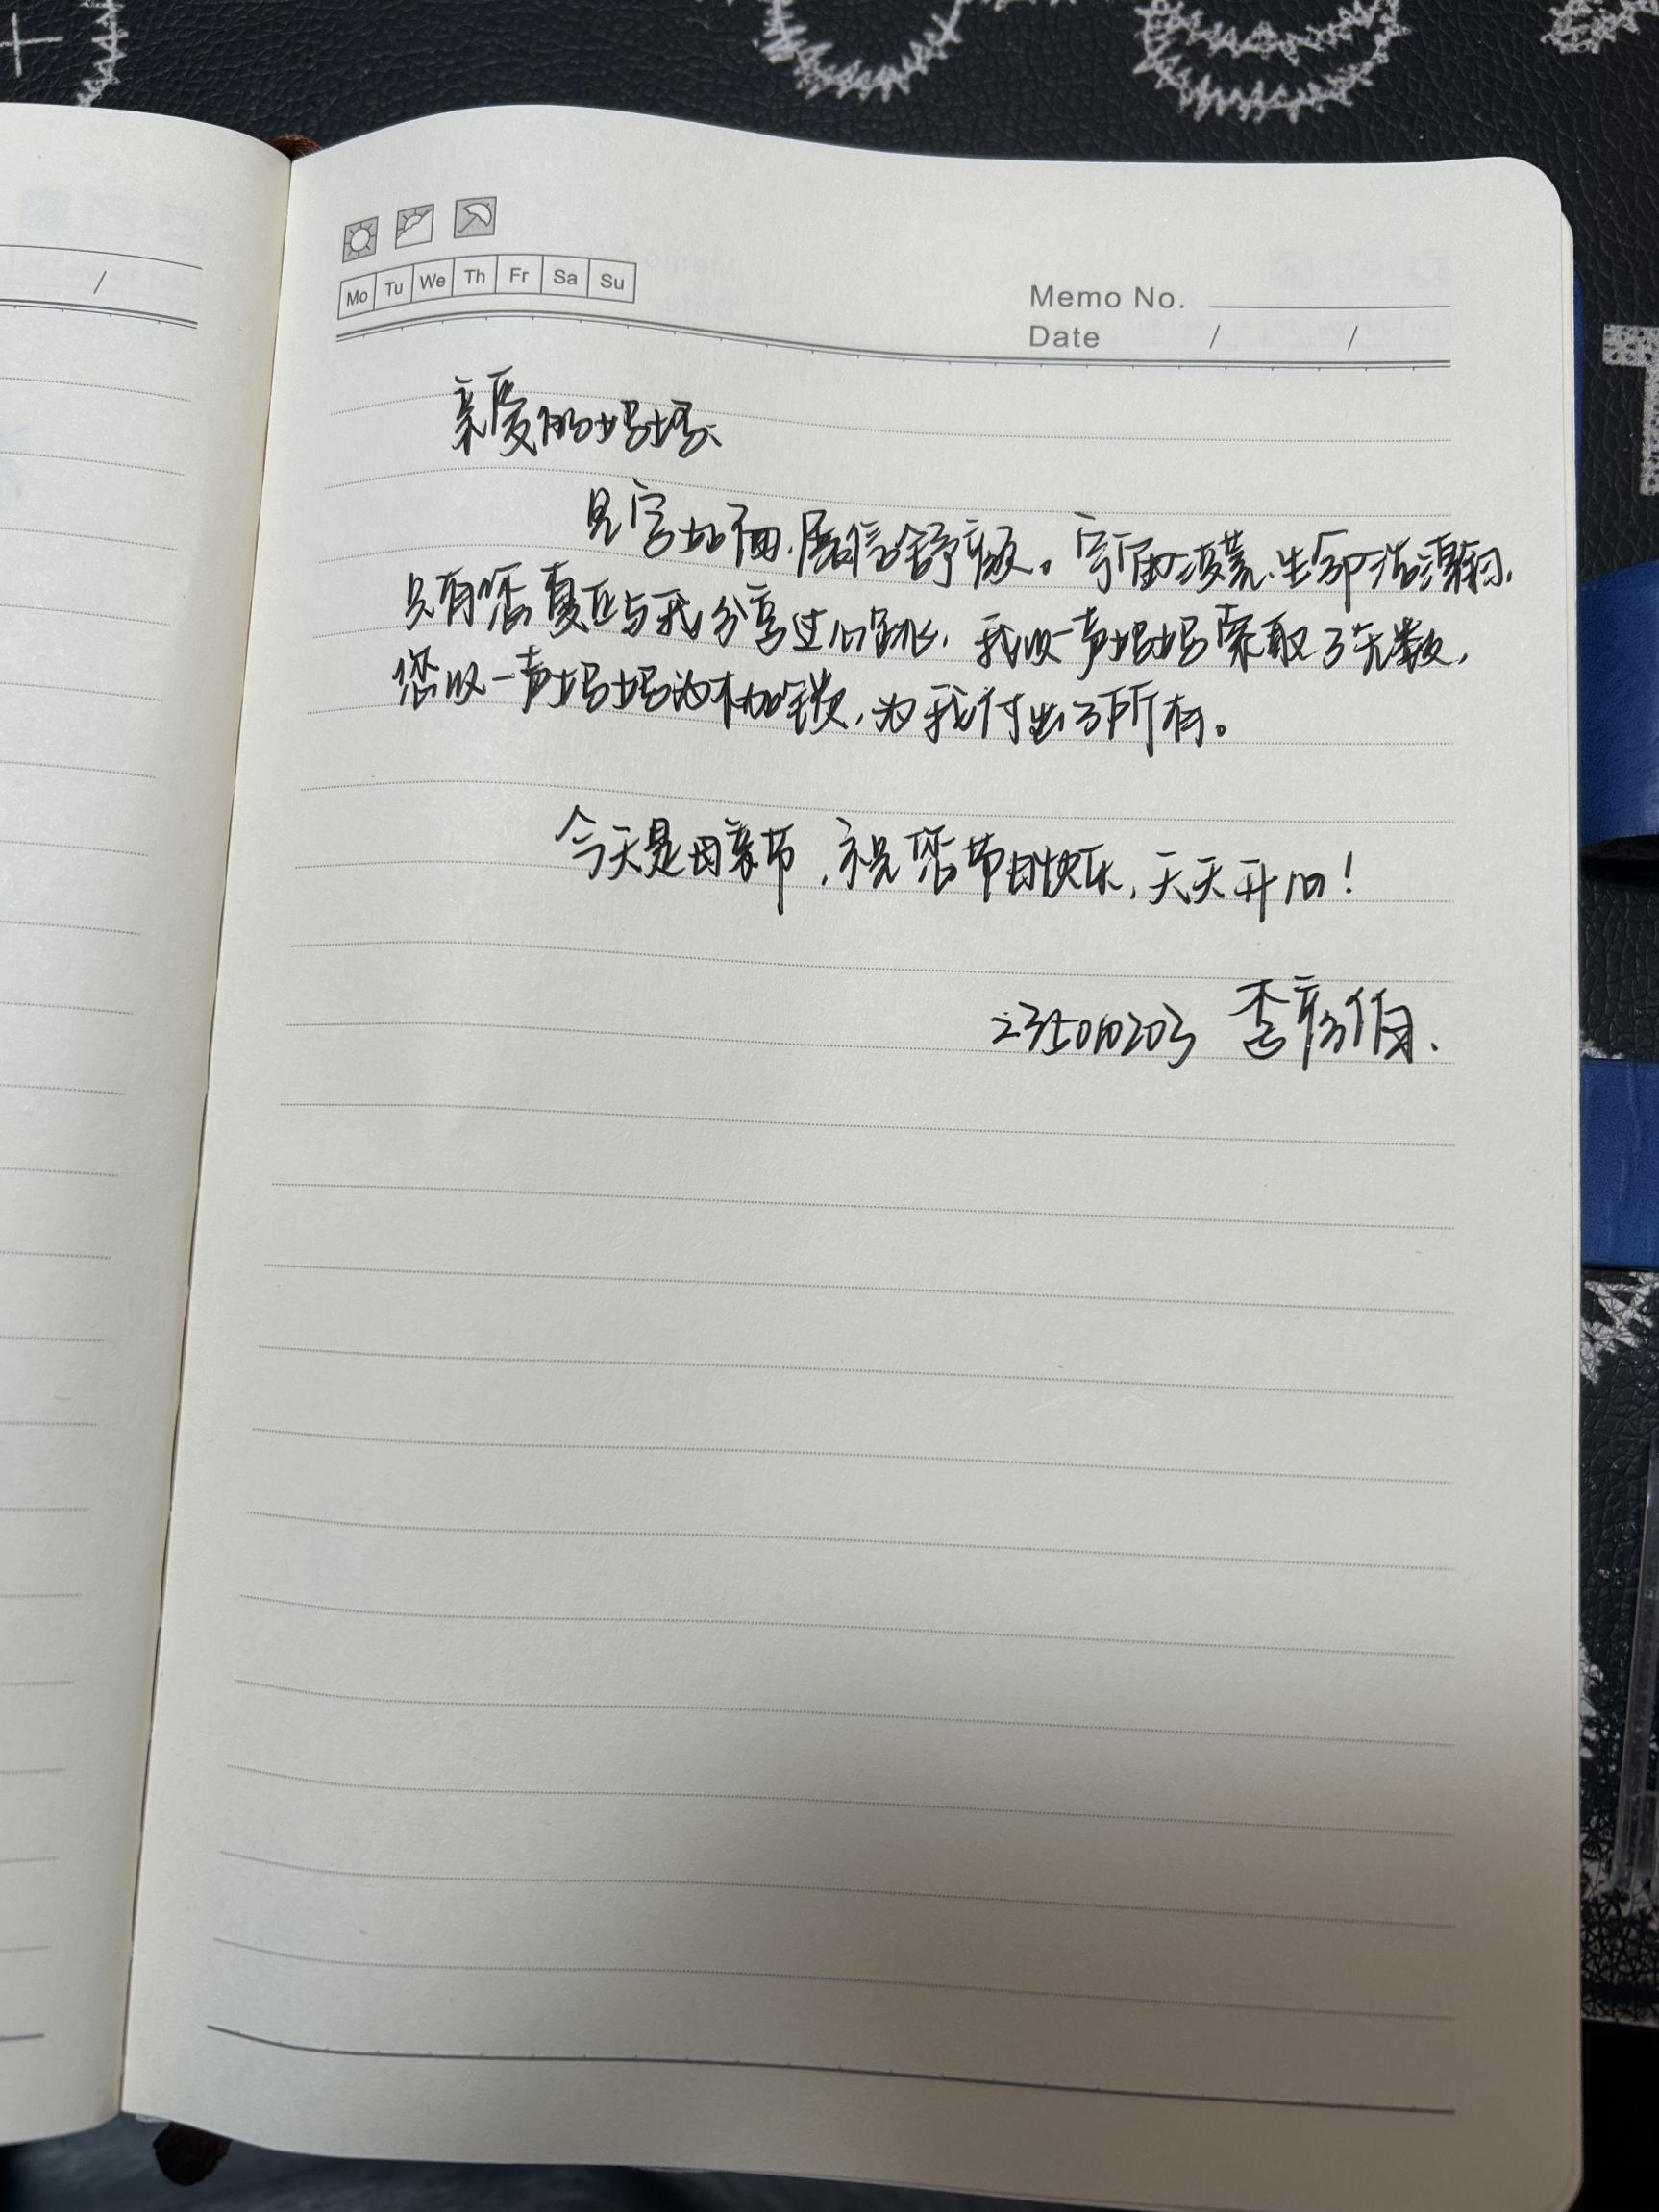 Mo Tu We Th Fr Sa Su
Memo No.
Date / /
亲爱的妈妈、
见字如面，展信舒颜。宇宙洪荒，生命浩瀚，
只有您真正与我分享过心跳，我以一声妈妈索取了无数，
您以一声妈妈为枷锁，为我付出了所有。
今天是母亲节，祝您节日快乐，天天开心！
李彦伯